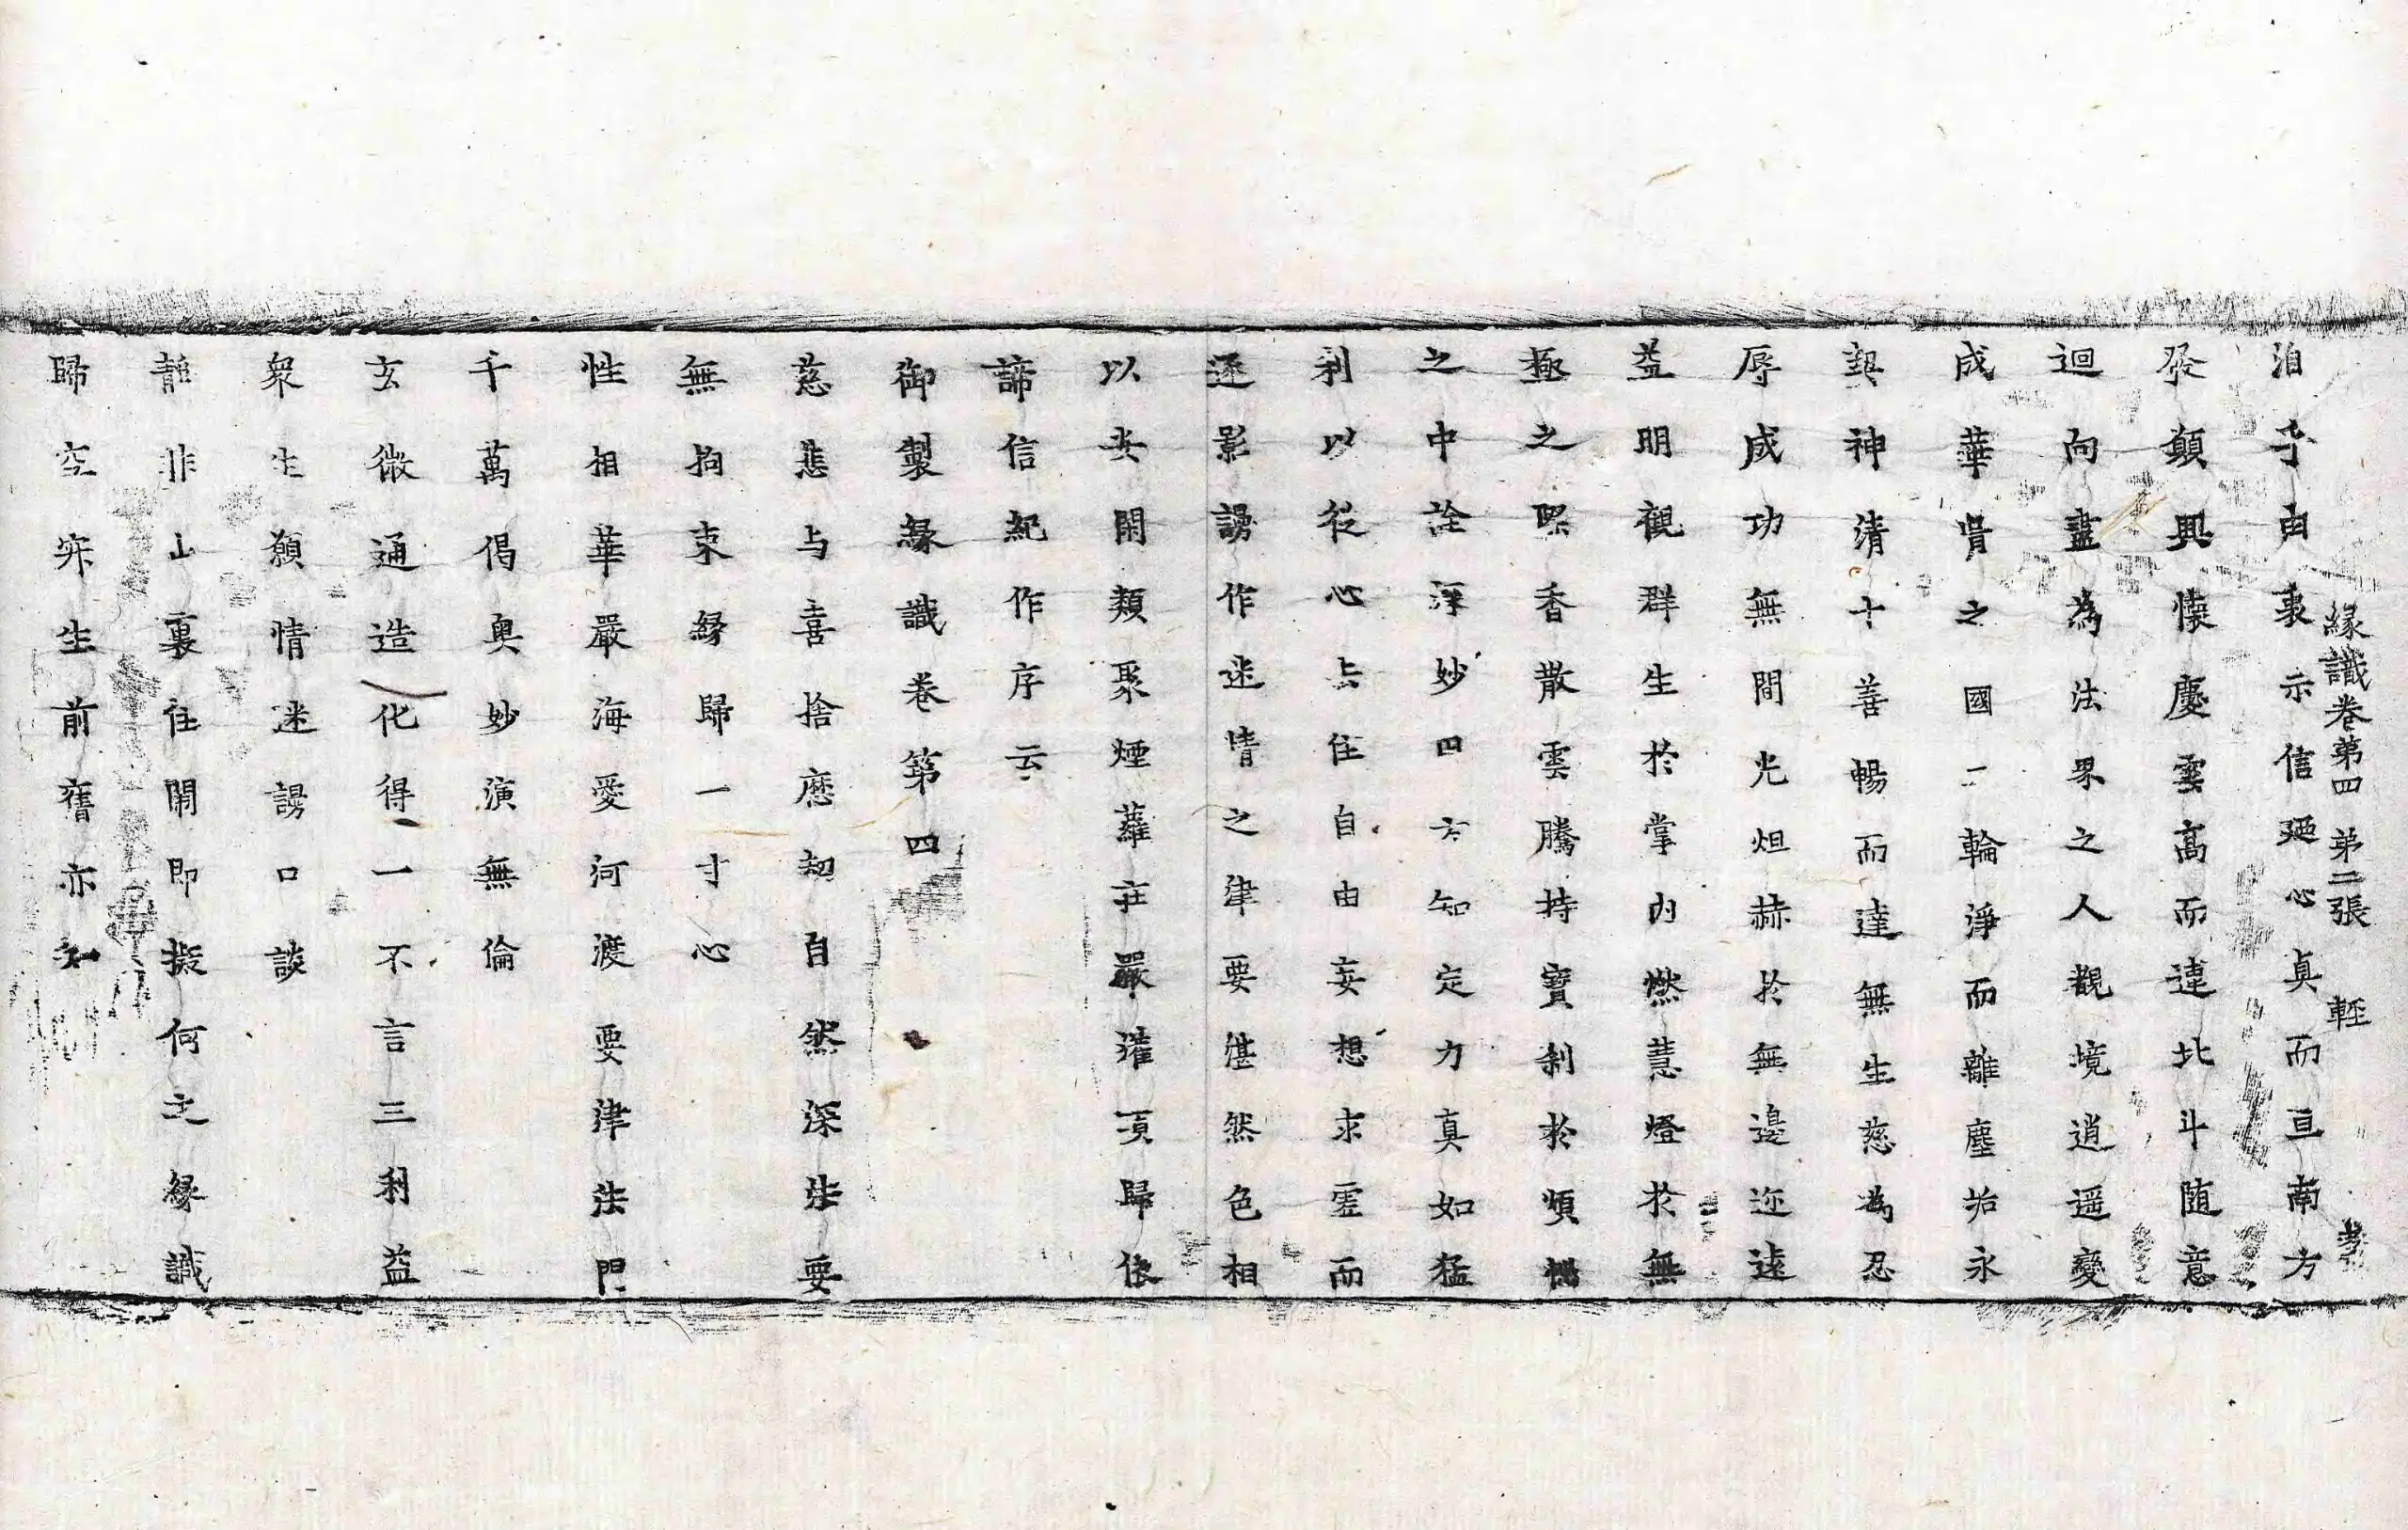 緣識卷第四　第二張　輕
洎乎由衷示信廻心真而亘南方
發願興懷慶雲高而違北斗随意
迴向盡為法界之人觀境逍遥變
成華胥之國一輪淨而離塵垢永
契神清十善暢而達無生慈為忍
辱成功無間光烜赫於無邊迩逺
益明觀群生於掌内燃慧燈於無
極之際香散雲騰持寶刹於煩惱
之中詮深妙四方知定力真如猛
利以從心上住自由妄想求虛而
逐影謗作迷情之津要湛然色相
以共閑類聚煙蘿莊嚴灌頂歸依
諦信紀作序云
御製緣識卷第四
慈悲与喜捨應契自然深法要
無拘束緣歸一寸心
性相華嚴海愛河渡要津法門
千萬偈奥妙演無倫
玄微通造化得一不言三利益
衆生願情迷謗口談
韶非山裏住開即擬何之緣識
歸空寂生前舊亦知